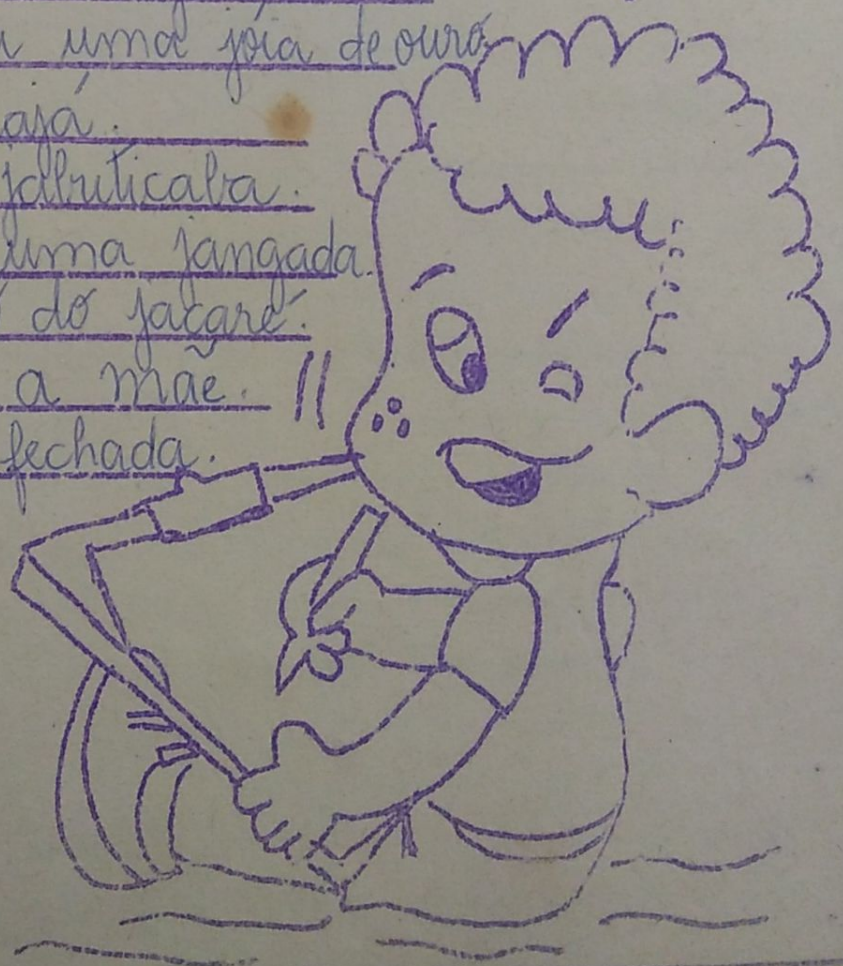 uma jóia de ouro
ajá.
jabuticaba.
uma jangada.
do jacaré.
a mãe.
fechada.